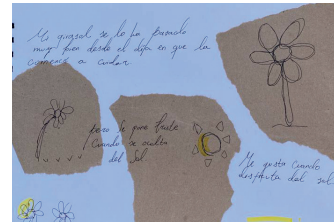 Mi girasol se lo ha pasado
muy bien desde el día en que la
comencé a cuidar
pero se pone triste
cuando se oculta
del sol
Me gusta cuando
disfruta del sol